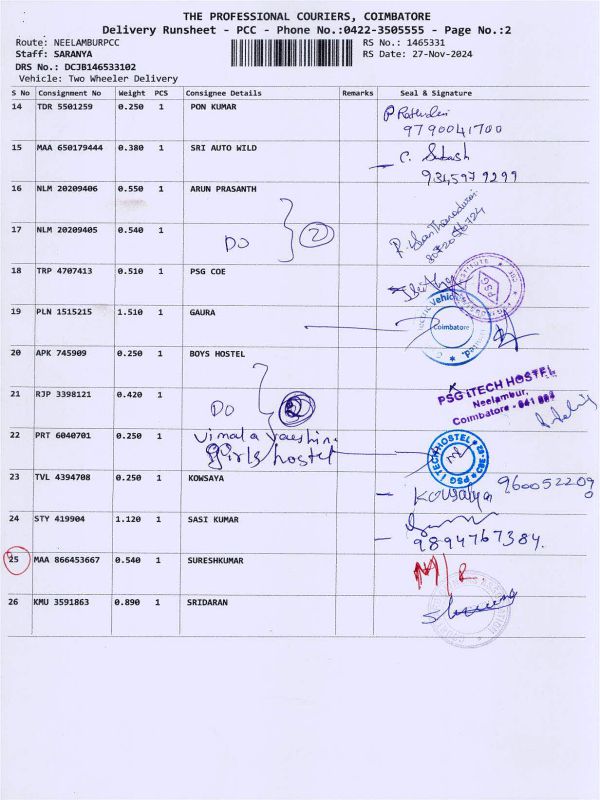 THE PROFESSIONAL COURIERS, COIMBATORE
Delivery Runsheet - PCC - Phone No.:0422-3505555 - Page No.:2
Route: NEELAMBURPCC RS No.: 1465331
Staff: SARANYA RS Date: 27-Nov-2024
DRS No.: DCJB146533102
Vehicle: Two Wheeler Delivery
S No Consignment No Weight PCS Consignee Details Remarks Seal & Signature
14 TDR 5501259 0.250 1 PON KUMAR
9790041700
15 MAA 650179444 0.380 1 SRI AUTO WILD C. Subash
9345979299
16 NLM 20209406 0.550 1 ARUN PRASANTH
17 NLM 20209405 0.540 1
DO 2
18 TRP 4707413 0.510 1 PSG COE
PSG
19 PLN 1515215 1.510 1 GAURA
Coimbatore
20 APK 745909 0.250 1 BOYS HOSTEL
PSG iTECH HOSTEL
Neelambur,
21 RJP 3398121 0.420 1
Coimbatore - 641
DO
22 PRT 6040701 0.250 1 Vimala
girls hostel
PSG iTECH HOSTEL
23 TVL 4394708 0.250 1 KOWSAYA
Kowsalya 9600522090
24 STY 419904 1.120 1 SASI KUMAR
9894767384.
25 MAA 866453667 0.540 1 SURESHKUMAR
26 KMU 3591863 0.890 1 SRIDARAN